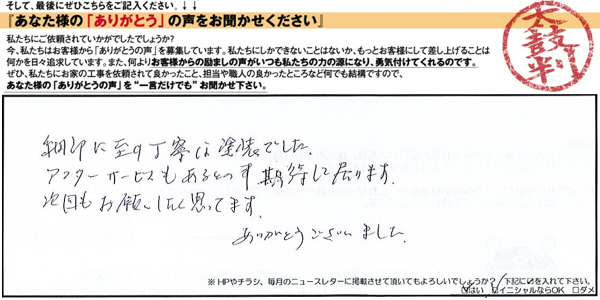 そして、最後にぜひこちらをご記入ください。↓↓
『あなた様の「ありがとう」の声をお聞かせください』
私たちにご依頼されていかがでしたでしょうか?
今、私たちはお客様から「ありがとうの声」を募集しています。私たちにしかできないことはないか、もっとお客様にして差し上げることは
何かを日々追求しています。また、何よりお客様からの励ましの声がいつも私たちの力の源になり、勇気付けてくれるのです。
ぜひ、私たちにお家の工事を依頼されて良かったこと、担当や職人の良かったところなど何でも結構ですので、
あなた様の「ありがとうの声」を“一言だけでも”お聞かせ下さい。
太鼓判
細部に至り丁寧な塗装でした。
アフターサービスもあるとの事期待して居ります
次回もお願いしたく思ってます。
ありがとうございました。
※HPやチラシ、毎月のニュースレターに掲載させて頂いてもよろしいでしょうか? 下記に☑を入れて下さい。
☑はい ☑イニシャルならOK □ダメ